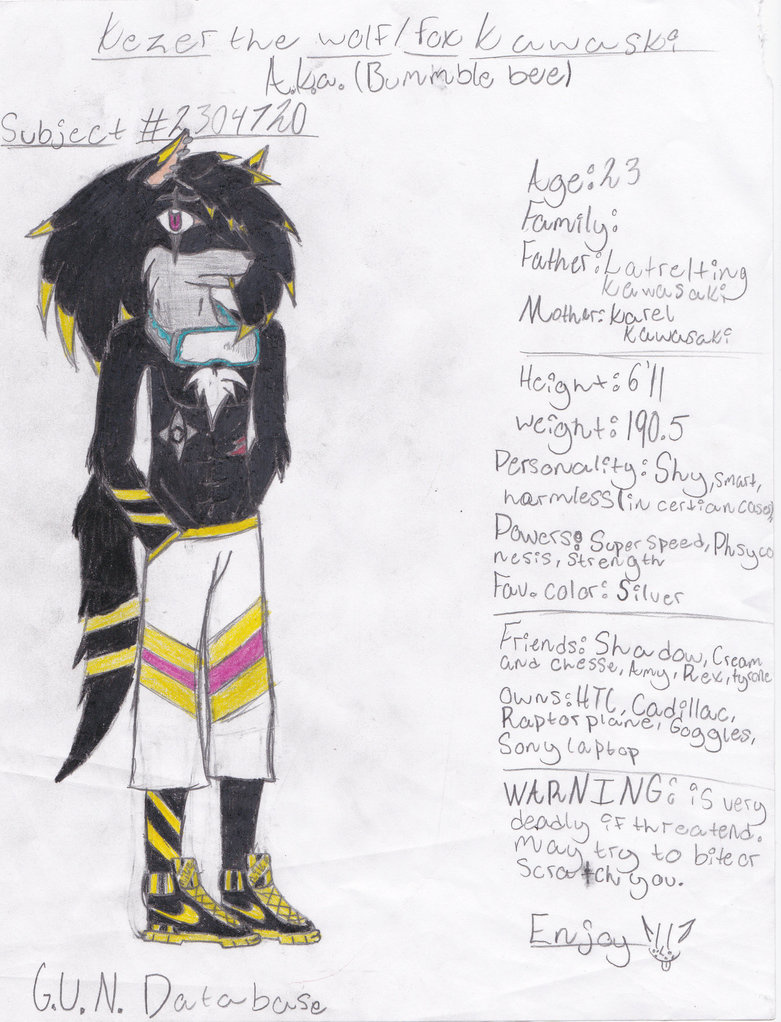 Kezer the wolf/fox Kawaski
A.k.a. (Bummble bee)
Subject #2304720
Age: 23
Family:
Father: Latrelting
Kawasaki
Mother: Karel
Kawasaki
Height: 6'11
weight: 190.5
Personality: Shy, smart,
harmless (in certian cases)
Powers: Super speed, Phsyco
nesis, strength
Fav. color: Silver
Friends: Shadow, Cream
and chesse, Amy, Rex, tyrone
owns: HTC, Cadillac,
Raptor plane, Goggles,
Sony laptop
WARNING: is very
deadly if threatend.
may try to bite or
scratch you.
Enjoy
G.U.N. Database